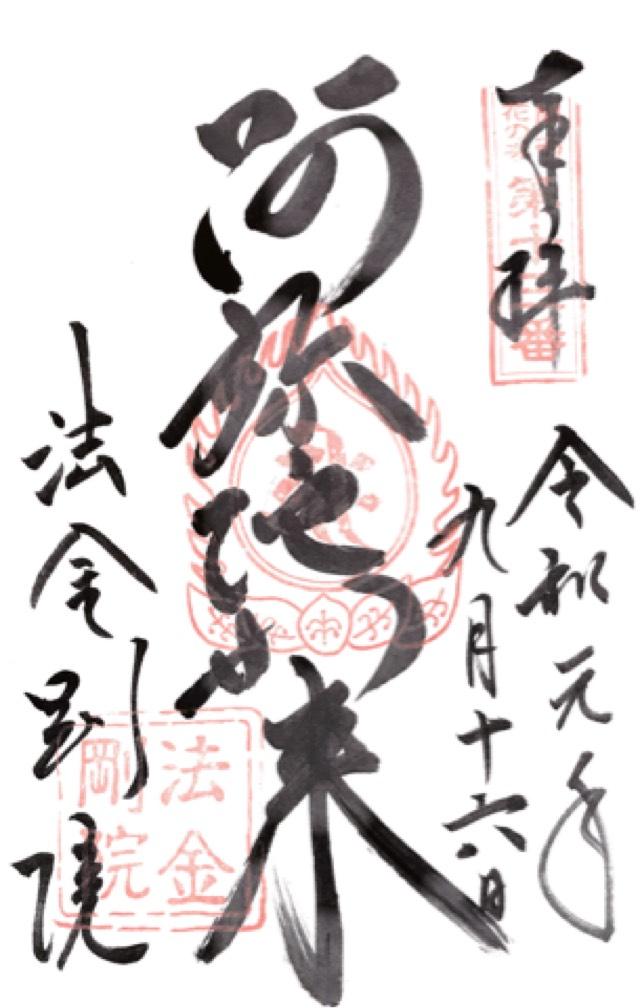 奉拝
第十三番
令和元年
九月十六日
阿弥陀如来
法金剛院
法金
剛院